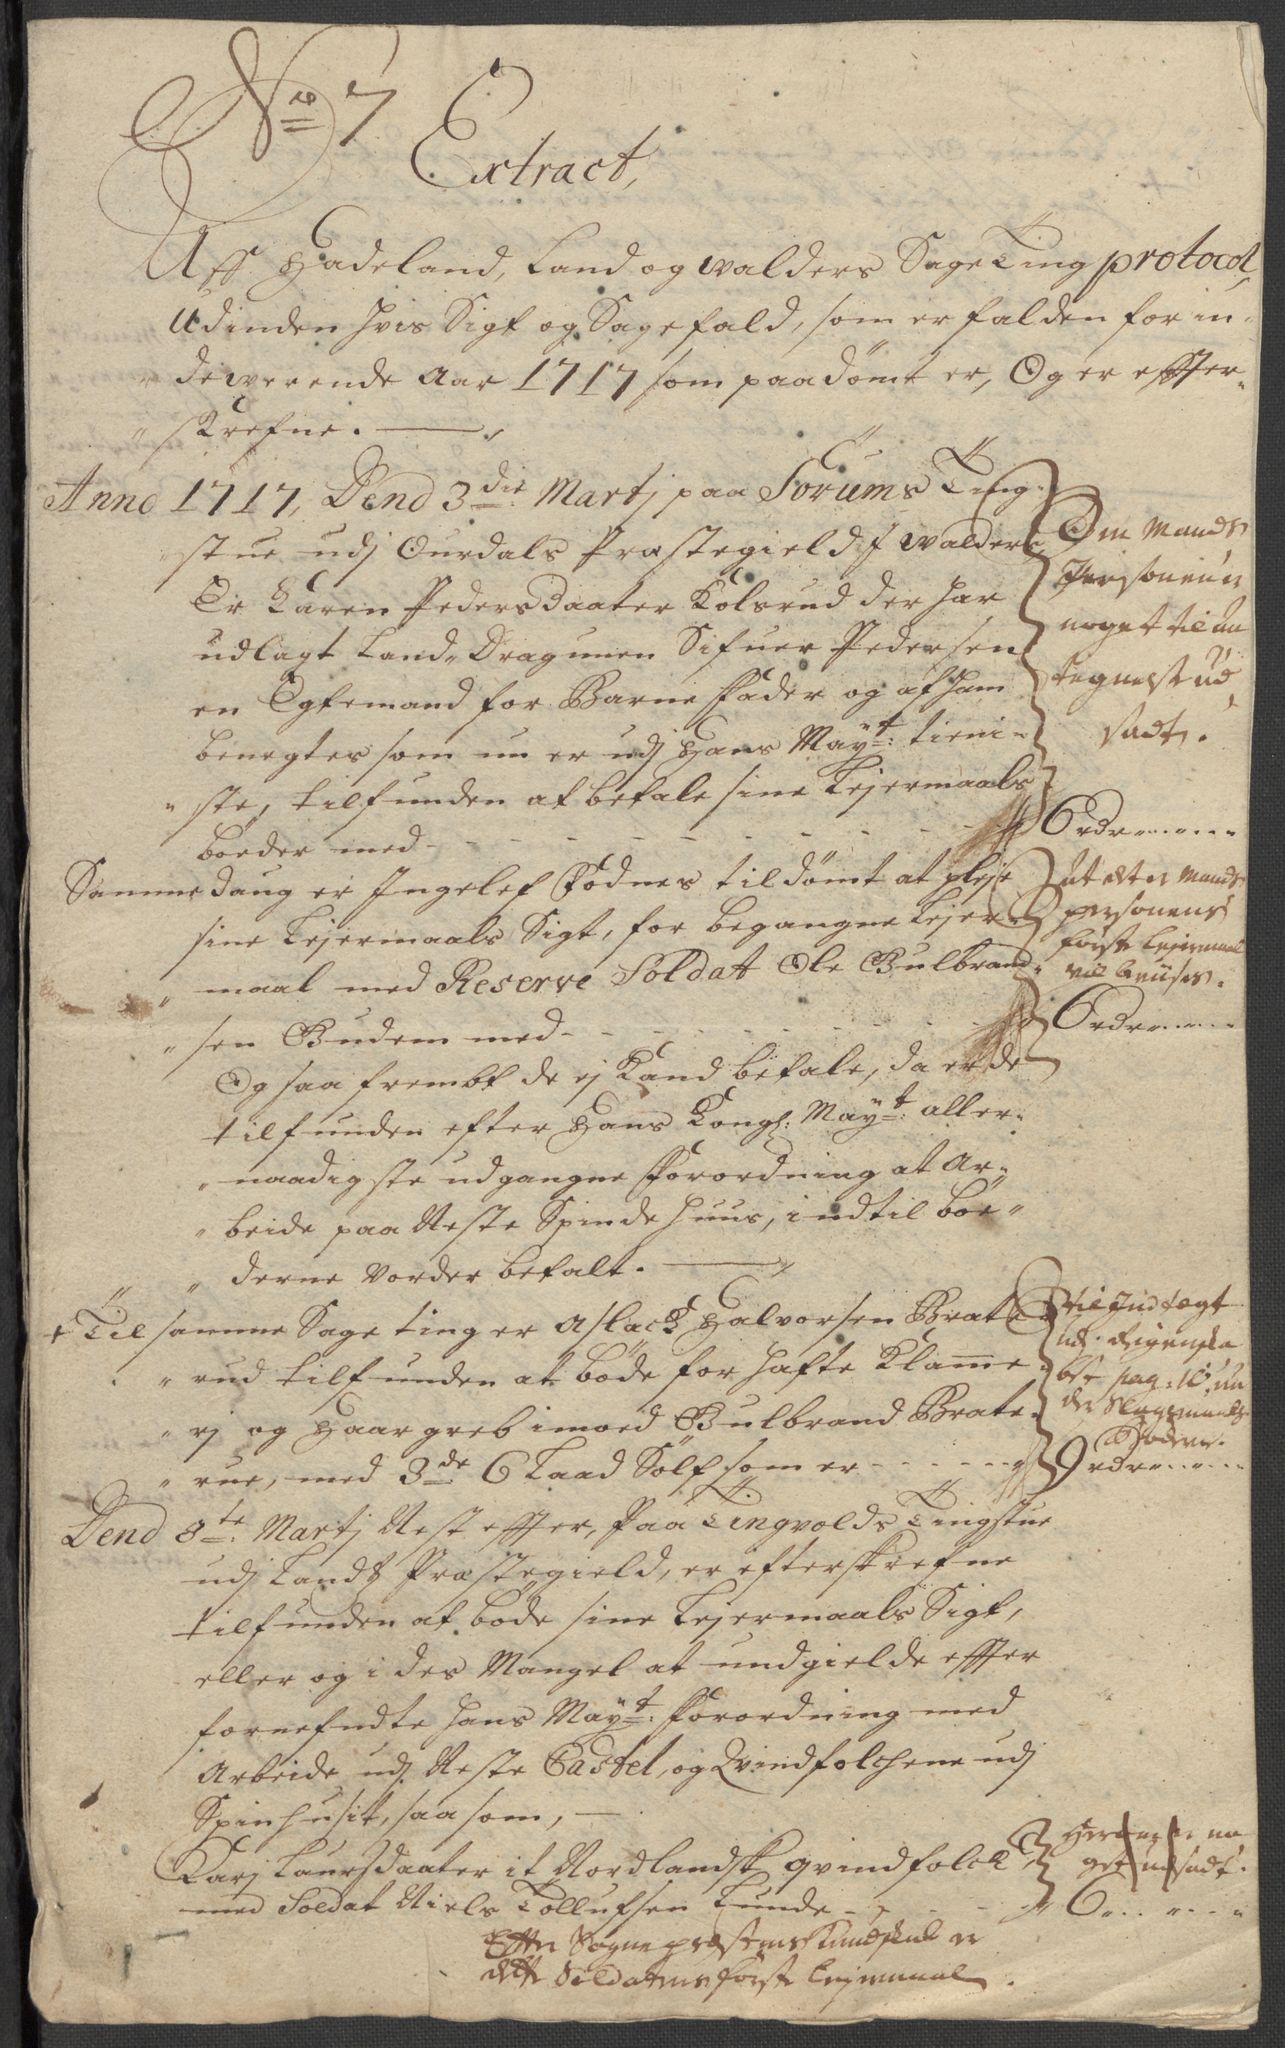 No 7
Extract,
Aff Hadeland, Land og Walders Sage Ting protocol,
Udinden hvis Sigt og Sagefald, som er falden for in-
dewerende Aar 1717 som paadömt er, Og er effter-
skrefne.
Anno 1717, Dend 3die Martj paa Sörums Ting-
stue udj Ourdals Præstegield J Walders
Er Karen Pedersdaater Kolsrud der har
udlagt Land-Dragunen Sifuer Pedersen
en Egtemand for Barne Fader og af ham
benegtes som nu er udj Hans Mayts: tieni-
ste, tilfunden at betale sine Lejermaals
böeder med - - - 6 rdr
Om Mands
Personen er
noget til An
tegnelse ud
sadt.
Samme daug er Ingelef Födnes tildömt at pleje
sine Lejermaals Sigt, for begangne Lejer-
maal med Reserve Soldat Ole Gulbrand-
sen Gudem med - - - 6 rdr
at det er Mands
personens
första Lejermaal
vil beviises.
Og saa frembt de ej Kand betale, da er de
tilfunden efter Hans Kongl: Mayts: aller-
naadigste udgangne Forordning at Ar-
beide paa Neste Spinde Huus, indtil böe-
derne Vorder betalt.
Til samme Sage ting er Aslack Halvorsen Brate-
rud tilfunden at böde for hafte Klamme-
rj og Haargreb imoed Gulbrand Brate-
rue, med 3de 6 Laad Sölf som er - - - 9 rdr
til Indtægt
pag: 10
Dend 8te Martj Nest effter, Paa Tingvolds Tingstue
udj Lands Præstegield, er efterskrefne
tilfunden at böde sine Lejermaals Sigt,
eller og i des Mangel at undgielde effter
fornefndte Hans Mayts: Forordning med
Arbeide udj Neste Castel, og Qvindfolchene udj
Spinhuset, saa som,
Karj Laursdaater it Nordlandsk qvindfolck
med Soldat Niels Tollufsen Lunde - - 6
Efter Sogne præstens Kundskab er
dette Soldatens första Lejermaal.